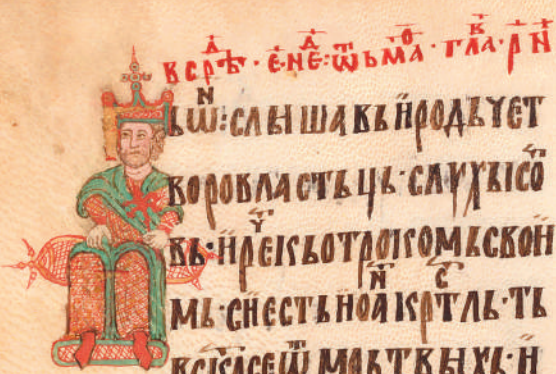 в срⷣѣ · е · неⷣ : ѿьмаⷪ · глаⷡ · рн
ьѡⷩ : слышавь иродь чет
воровластьць · слухь ісоⷡ
вь · и рⷱе кь отрокомь свои
мь · си есть иоаⷩ крⷭтль · ть
вскрсе ѿ мьтвыхь · и